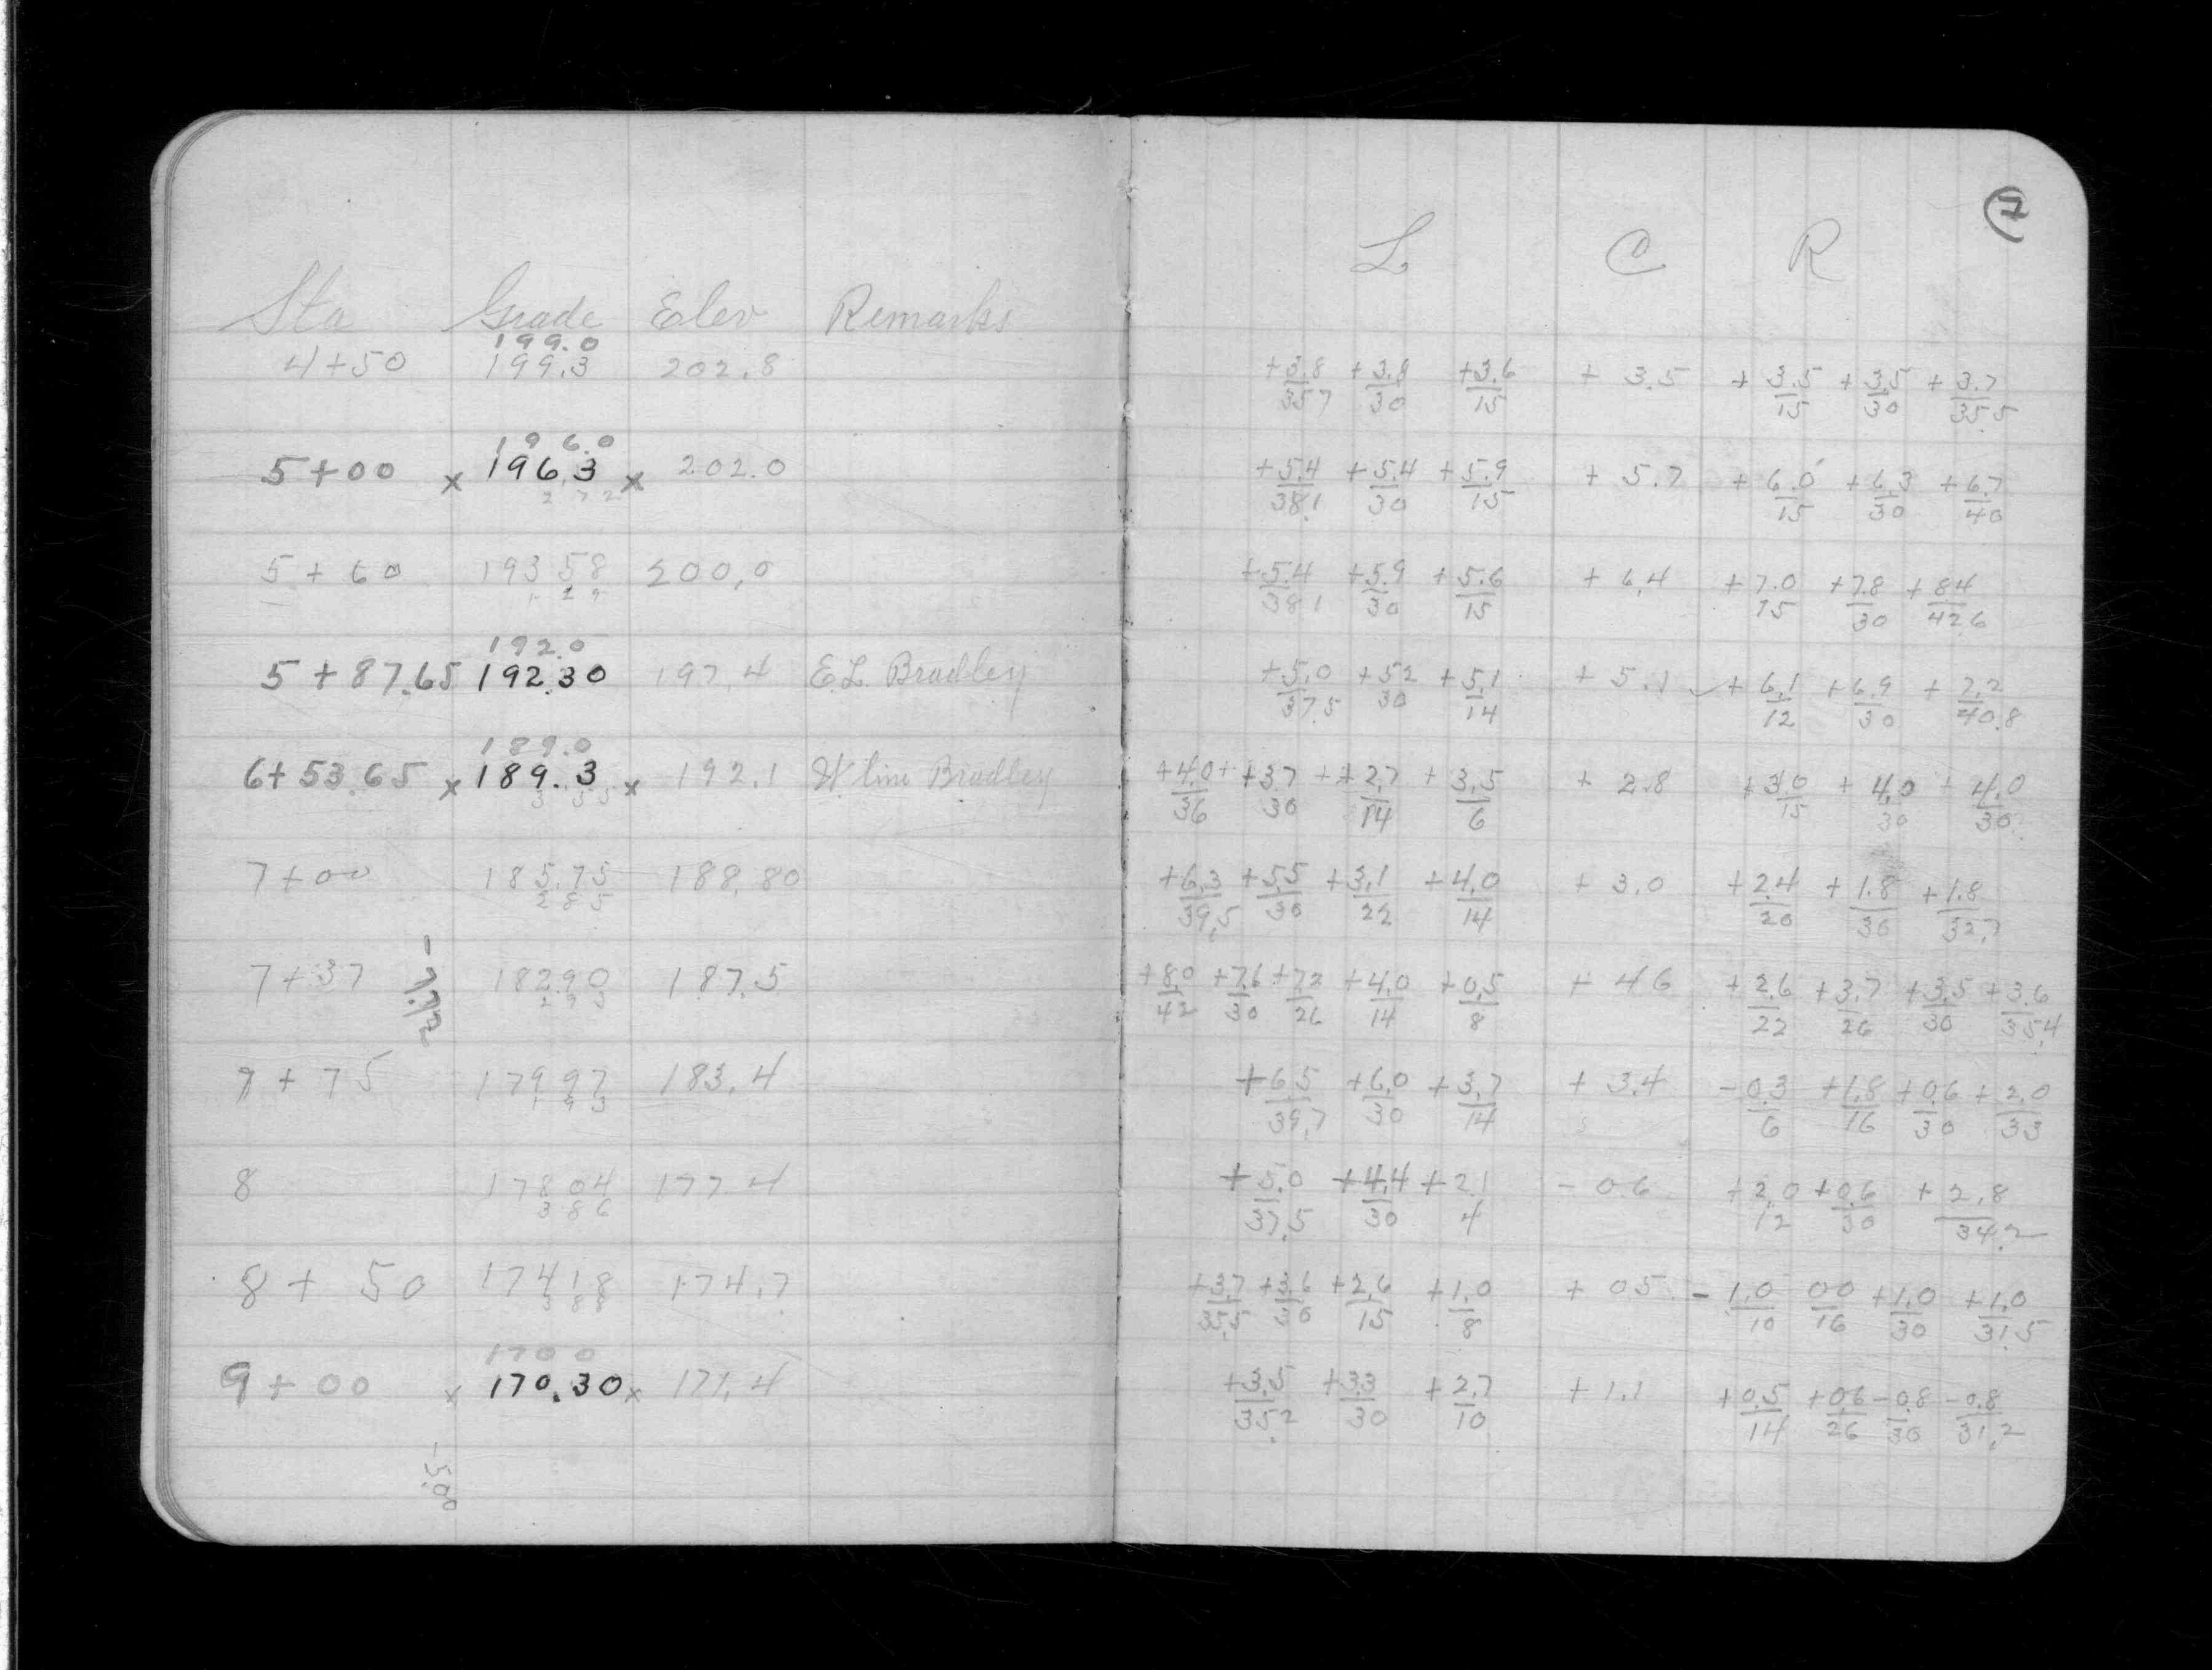 7
L C R
Sta Grade Elev Remarks
199.0
4+50 199.3 202.8 +3.8/35.7 +3.8/30 +3.6/15 + 3.5 + 3.5/15 +3.5/30 +3.7/35.5
196.0
5+00 x 196.3 x 202.0 +5.4/38.1 +5.4/30 +5.9/15 + 5.7 + 6.0/15 +6.3/30 +6.7/40
2 7 2
5+60 193.58 200.0 +5.4/38.1 +5.9/30 +5.6/15 + 6.4 +7.0/15 +7.8/30 +8.4/42.6
192.0
5+87.65 192.30 197.4 E.L. Bradley +5.0/37.5 +5.2/30 +5.1/14 + 5.1 + 6.1/12 +6.9/30 + 7.2/40.8
189.0
6+53.65 x 189.3 x 192.1 W line Bradley +4.0/36 +3.7/30 +2.7/14 + 3.5/6 + 2.8 +3.0/15 + 4.0/30 + 4.0/30
3 5 5
7+00 185.75 188.80 +6.3/39.5 +5.5/30 +3.1/22 +4.0/14 + 3.0 +2.4/20 +1.8/30 +1.8/32.7
2 8 5
7+37 182.90 187.5 +8.0/42 +7.6/30 +7.2/26 +4.0/14 +0.5/8 + 4.6 +2.6/22 +3.7/26 +3.5/30 +3.6/35.4
2 9 3
7+75 179.97 183.4 +6.5/39.7 +6.0/30 +3.7/14 + 3.4 -0.3/6 +1.8/16 +0.6/30 +2.0/33
1 9 3
8 178.04 177.4 +5.0/37.5 +4.4/30 +2.1/4 - 0.6 +2.0/12 +0.6/30 +2.8/34.2
3 8 6
8+50 174.18 174.7 +3.7/35.5 +3.6/30 +2.6/15 +1.0/8 + 0.5 -1.0/10 0.0/16 +1.0/30 +1.0/31.5
3 8 8
170.0
9+00 x 170.30 x 171.4 +3.5/35.2 +3.3/30 +2.7/10 + 1.1 +0.5/14 +0.6/26 -0.8/30 -0.8/31.2